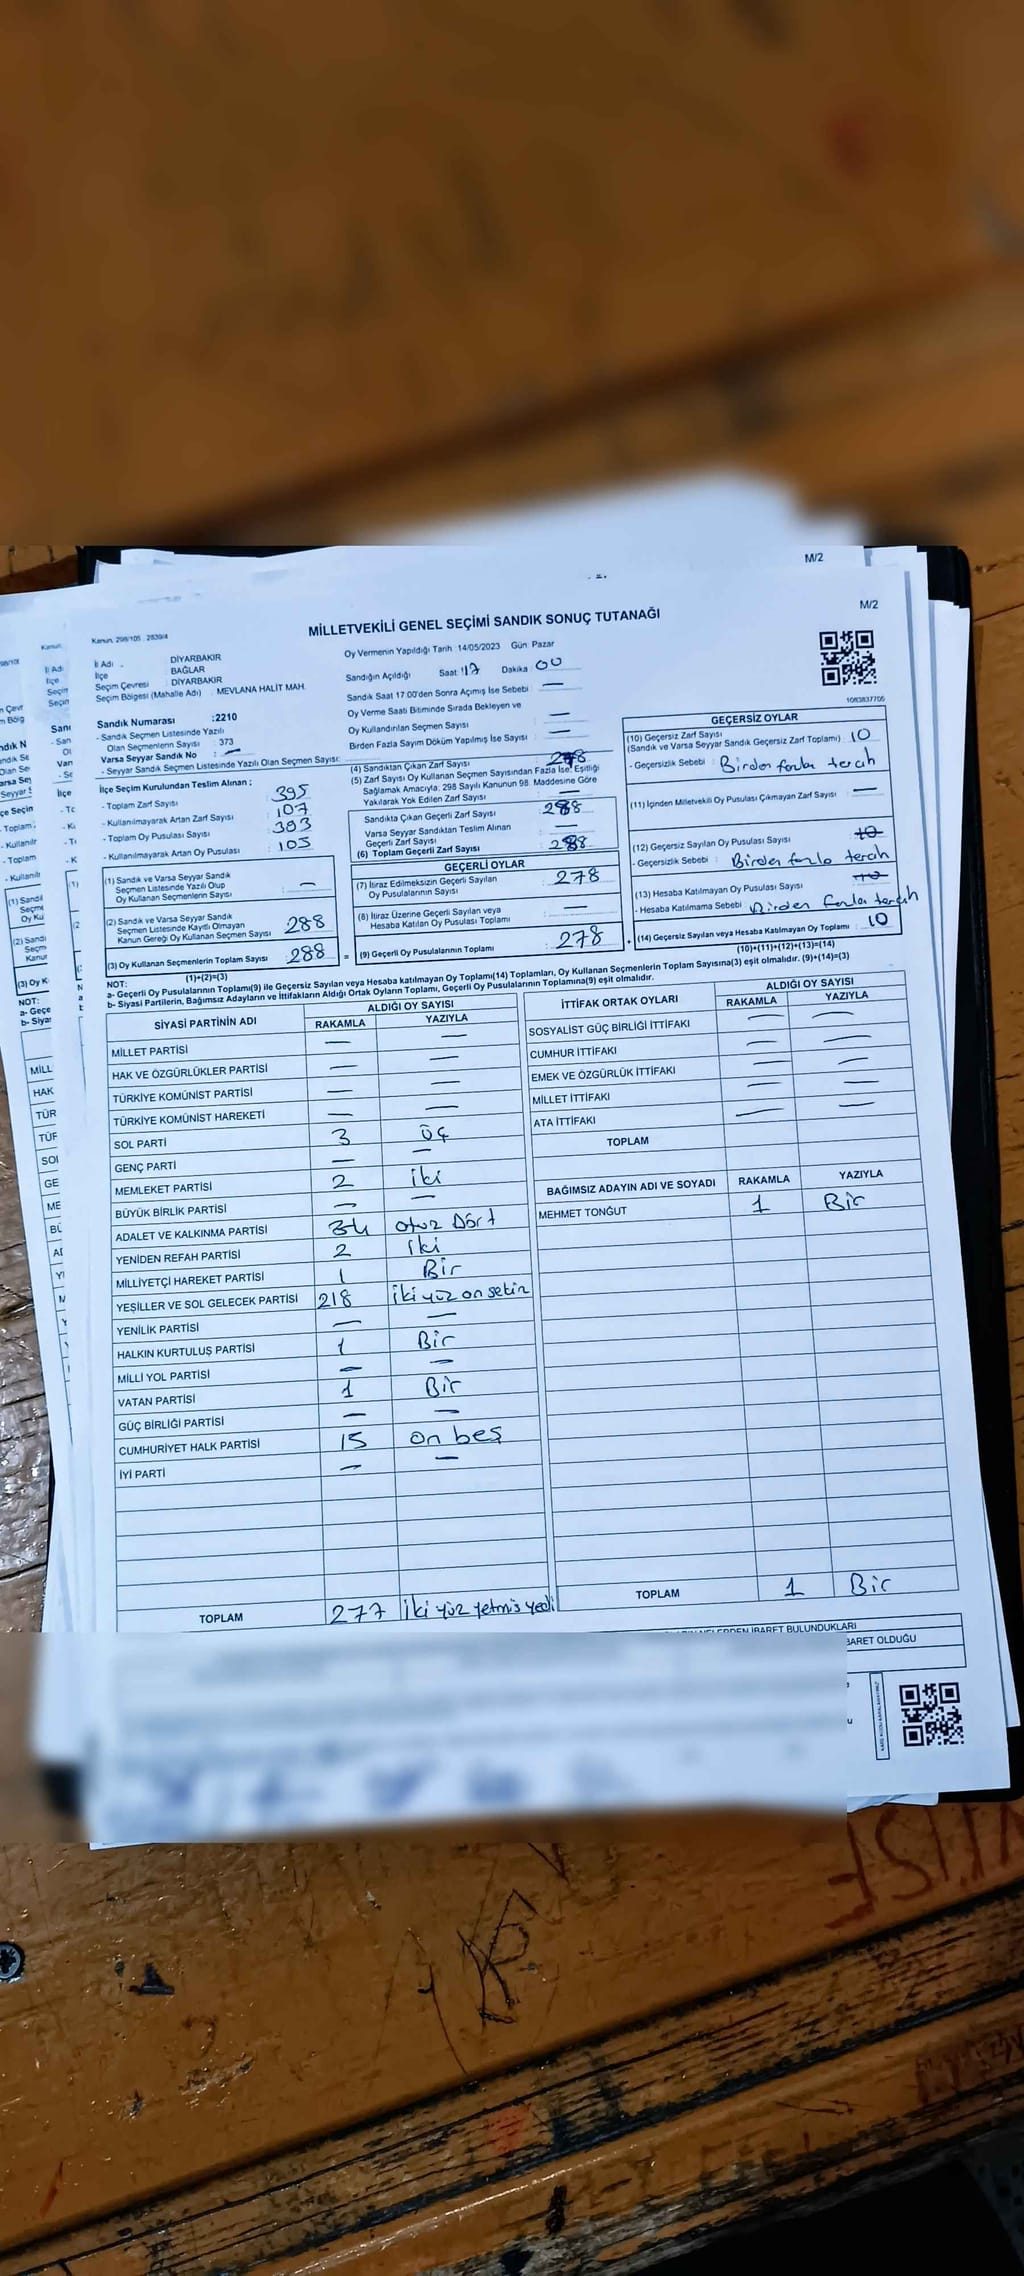 M/2
M/2
Kanun, 298/105 , 2839/4
MİLLETVEKİLİ GENEL SEÇİMİ SANDIK SONUÇ TUTANAĞI
İl Adı : DİYARBAKIR
İlçe BAĞLAR
Seçim Çevresi DİYARBAKIR
Seçim Bölgesi (Mahalle Adı) : MEVLANA HALİT MAH.
Sandık Numarası :2210
- Sandık Seçmen Listesinde Yazılı
Olan Seçmenlerin Sayısı : 373
Varsa Seyyar Sandık No : —
- Seyyar Sandık Seçmen Listesinde Yazılı Olan Seçmen Sayısı:
İlçe Seçim Kurulundan Teslim Alınan ;
- Toplam Zarf Sayısı : 395
- Kullanılmayarak Artan Zarf Sayısı : 107
- Toplam Oy Pusulası Sayısı : 393
- Kullanılmayarak Artan Oy Pusulası : 105
(1) Sandık ve Varsa Seyyar Sandık
Seçmen Listesinde Yazılı Olup
Oy Kullanan Seçmenlerin Sayısı : —
(2) Sandık ve Varsa Seyyar Sandık
Seçmen Listesinde Kayıtlı Olmayan
Kanun Gereği Oy Kullanan Seçmen Sayısı : 288
(3) Oy Kullanan Seçmenlerin Toplam Sayısı : 288
(1)+(2)=(3)
Oy Vermenin Yapıldığı Tarih 14/05/2023 Gün: Pazar
Sandığın Açıldığı Saat : 17 Dakika 00
Sandık Saat 17.00'den Sonra Açımış İse Sebebi —
Oy Verme Saati Bitiminde Sırada Bekleyen ve
Oy Kullandırılan Seçmen Sayısı : —
Birden Fazla Sayım Döküm Yapılmış İse Sayısı : —
(4) Sandıktan Çıkan Zarf Sayısı :
(5) Zarf Sayısı Oy Kullanan Seçmen Sayısından Fazla İse; Eşitliği
Sağlamak Amacıyla; 298 Sayılı Kanunun 98. Maddesine Göre
Yakılarak Yok Edilen Zarf Sayısı : —
Sandıkta Çıkan Geçerli Zarf Sayısı : 288
Varsa Seyyar Sandıktan Teslim Alınan
Geçerli Zarf Sayısı : —
(6) Toplam Geçerli Zarf Sayısı : 288
GEÇERLİ OYLAR
(7) İtiraz Edilmeksizin Geçerli Sayılan
Oy Pusulalarının Sayısı : 278
(8) İtiraz Üzerine Geçerli Sayılan veya
Hesaba Katılan Oy Pusulası Toplamı : —
(9) Geçerli Oy Pusulalarının Toplamı : 278
1083837705
GEÇERSİZ OYLAR
(10) Geçersiz Zarf Sayısı
(Sandık ve Varsa Seyyar Sandık Geçersiz Zarf Toplamı) : 10
- Geçersizlik Sebebi : Birden fazla tercih
(11) İçinden Milletvekili Oy Pusulası Çıkmayan Zarf Sayısı : —
(12) Geçersiz Sayılan Oy Pusulası Sayısı : 10
- Geçersizlik Sebebi : Birden fazla tercih
(13) Hesaba Katılmayan Oy Pusulası Sayısı : 10
- Hesaba Katılmama Sebebi : Birden fazla tercih
(14) Geçersiz Sayılan veya Hesaba Katılmayan Oy Toplamı : 10
(10)+(11)+(12)+(13)=(14)
NOT:
a- Geçerli Oy Pusulalarının Toplamı(9) ile Geçersiz Sayılan veya Hesaba katılmayan Oy Toplamı(14) Toplamları, Oy Kullanan Seçmenlerin Toplam Sayısına(3) eşit olmalıdır. (9)+(14)=(3)
b- Siyasi Partilerin, Bağımsız Adayların ve İttifakların Aldığı Ortak Oyların Toplamı, Geçerli Oy Pusulalarının Toplamına(9) eşit olmalıdır.
SİYASİ PARTİNİN ADI ALDIĞI OY SAYISI
RAKAMLA YAZIYLA
MİLLET PARTİSİ — —
HAK VE ÖZGÜRLÜKLER PARTİSİ — —
TÜRKİYE KOMÜNİST PARTİSİ — —
TÜRKİYE KOMÜNİST HAREKETİ — —
SOL PARTİ 3 üç
GENÇ PARTİ — —
MEMLEKET PARTİSİ 2 iki
BÜYÜK BİRLİK PARTİSİ — —
ADALET VE KALKINMA PARTİSİ 34 otuz Dört
YENİDEN REFAH PARTİSİ 2 iki
MİLLİYETÇİ HAREKET PARTİSİ 1 Bir
YEŞİLLER VE SOL GELECEK PARTİSİ 218 iki yüz on sekiz
YENİLİK PARTİSİ — —
HALKIN KURTULUŞ PARTİSİ 1 Bir
MİLLİ YOL PARTİSİ — —
VATAN PARTİSİ 1 Bir
GÜÇ BİRLİĞİ PARTİSİ — —
CUMHURİYET HALK PARTİSİ 15 on beş
İYİ PARTİ — —
TOPLAM 277 iki yüz yetmiş yedi
İTTİFAK ORTAK OYLARI ALDIĞI OY SAYISI
RAKAMLA YAZIYLA
SOSYALİST GÜÇ BİRLİĞİ İTTİFAKI — —
CUMHUR İTTİFAKI — —
EMEK VE ÖZGÜRLÜK İTTİFAKI — —
MİLLET İTTİFAKI — —
ATA İTTİFAKI — —
TOPLAM
BAĞIMSIZ ADAYIN ADI VE SOYADI RAKAMLA YAZIYLA
MEHMET TONĞUT 1 Bir
TOPLAM 1 Bir
İBARET BULUNDUKLARI
BARET OLDUĞU